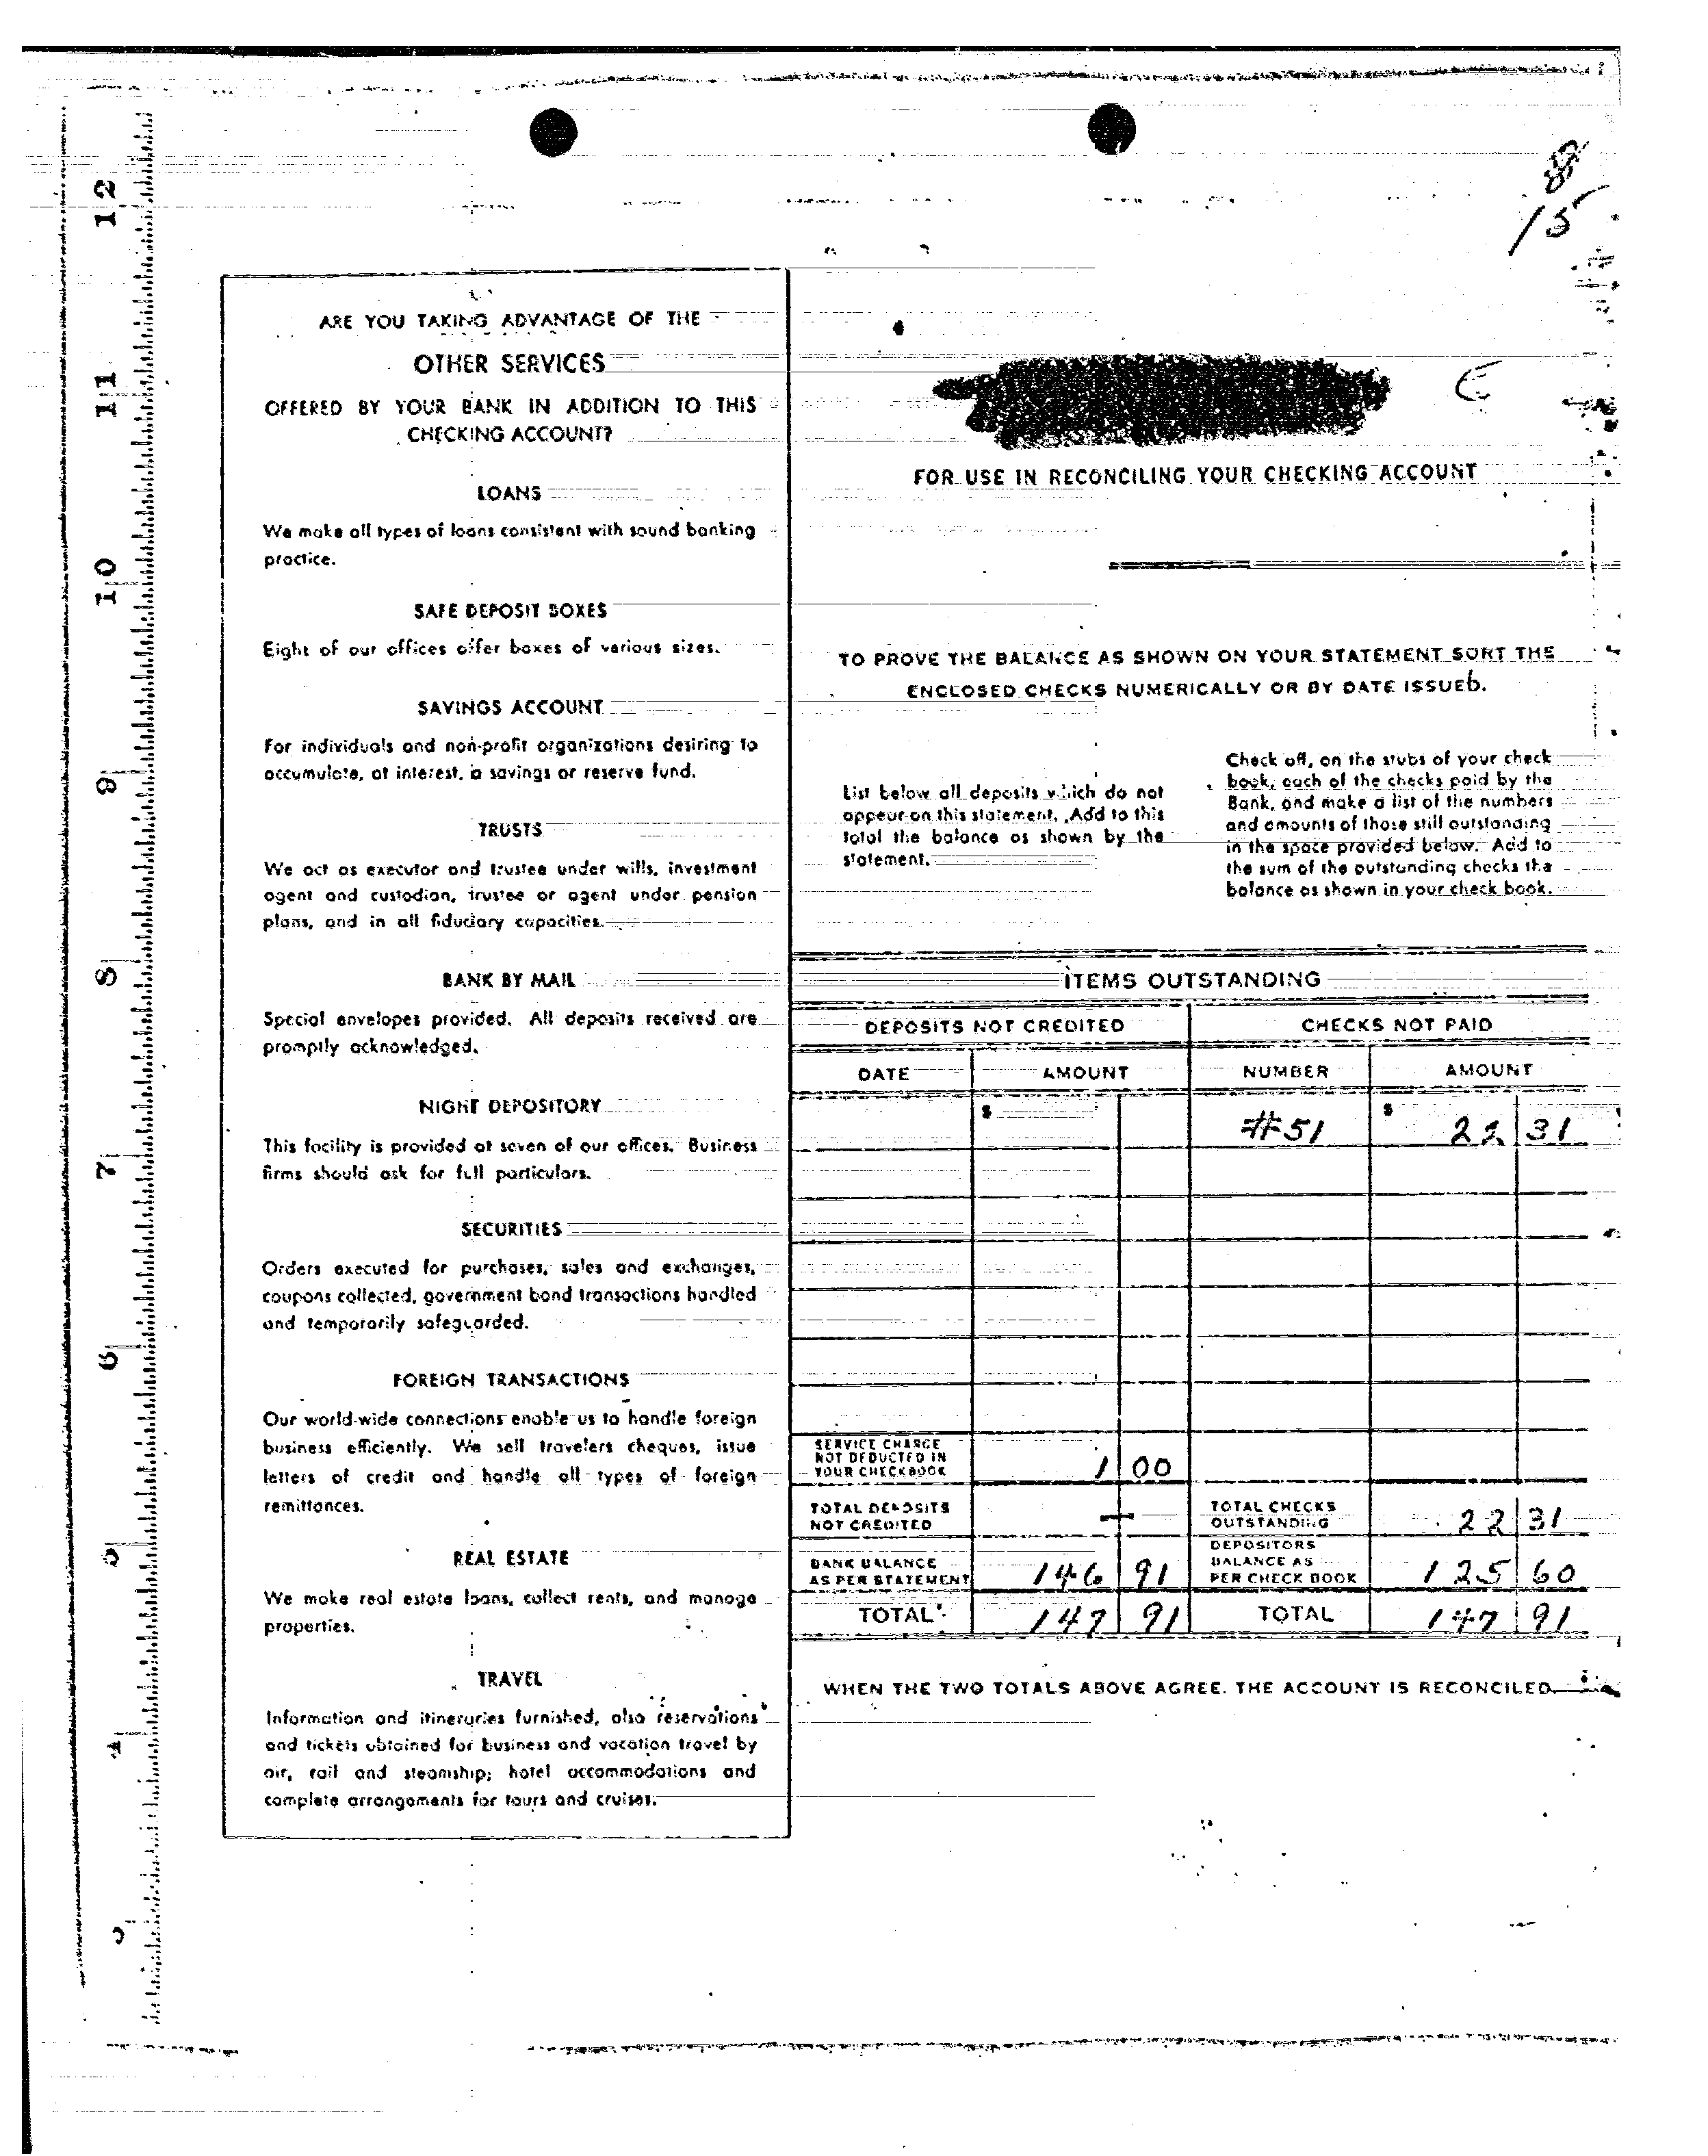 8
15
12
11
10
9
8
7
6
5
4
ARE YOU TAKING ADVANTAGE OF THE
OTHER SERVICES
OFFERED BY YOUR BANK IN ADDITION TO THIS
CHECKING ACCOUNT?
LOANS
We make all types of loans consistent with sound banking
practice.
SAFE DEPOSIT BOXES
Eight of our offices offer boxes of various sizes.
SAVINGS ACCOUNT
For individuals and non-profit organizations desiring to
accumulate, at interest, a savings or reserve fund.
TRUSTS
We act as executor and trustee under wills, investment
agent and custodian, trustee or agent under pension
plans, and in all fiduciary capacities.
BANK BY MAIL
Special envelopes provided. All deposits received are
promptly acknowledged.
NIGHT DEPOSITORY
This facility is provided at seven of our offices. Business
firms should ask for full particulars.
SECURITIES
Orders executed for purchases, sales and exchanges,
coupons collected, government bond transactions handled
and temporarily safeguarded.
FOREIGN TRANSACTIONS
Our world-wide connections enable us to handle foreign
business efficiently. We sell travelers cheques, issue
letters of credit and handle all types of foreign
remittances.
REAL ESTATE
We make real estate loans, collect rents, and manage
properties.
TRAVEL
Information and itineraries furnished, also reservations
and tickets obtained for business and vacation travel by
air, rail and steamship; hotel accommodations and
complete arrangements for tours and cruises.
FOR USE IN RECONCILING YOUR CHECKING ACCOUNT
TO PROVE THE BALANCE AS SHOWN ON YOUR STATEMENT SORT THE
ENCLOSED CHECKS NUMERICALLY OR BY DATE ISSUED.
List below all deposits which do not
appear on this statement. Add to this
total the balance as shown by the
statement.
Check off, on the stubs of your check
book, each of the checks paid by the
Bank, and make a list of the numbers
and amounts of those still outstanding
in the space provided below. Add to
the sum of the outstanding checks the
balance as shown in your check book.
ITEMS OUTSTANDING
DEPOSITS NOT CREDITED CHECKS NOT PAID
DATE AMOUNT NUMBER AMOUNT
$ #51 $ 22 31
SERVICE CHARGE
NOT DEDUCTED IN
YOUR CHECKBOOK 1 00
TOTAL DEPOSITS
NOT CREDITED —
TOTAL CHECKS
OUTSTANDING 22 31
BANK BALANCE
AS PER STATEMENT 146 91
DEPOSITORS
BALANCE AS
PER CHECK BOOK 125 60
TOTAL 147 91 TOTAL 147 91
WHEN THE TWO TOTALS ABOVE AGREE. THE ACCOUNT IS RECONCILED.